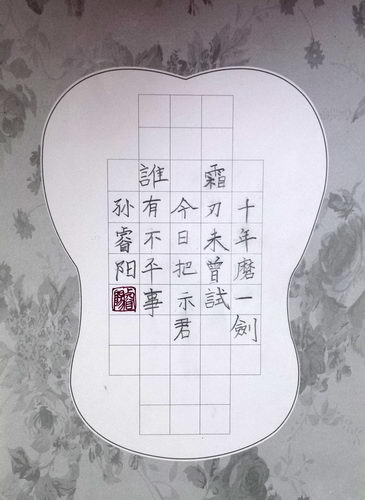 十年磨一劍
霜刃未曾試
今日把示君
誰有不平事
孙睿阳